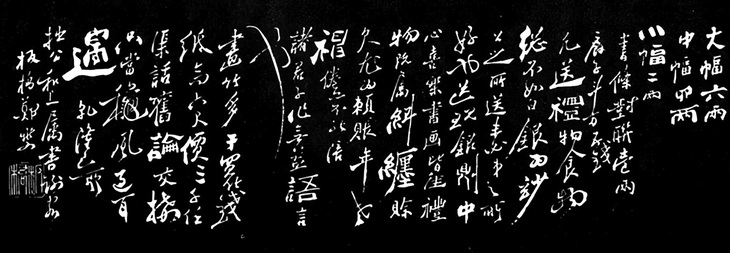 大幅六兩
中幅四兩
小幅二兩
書條對聯壹兩
扇子斗方五錢
凡送禮物食物
總不如白銀為妙
公之所送未必弟之所
好也送現銀則中
心喜樂書画皆佳禮
物既属糾纏賒
欠尤為賴賬年老
神倦亦不能陪
諸君子作無益語言
也
畫竹多于買竹錢
紙高六尺價三千任
渠話舊論交接
只當秋風過耳
邊 乾隆己卯
拙公和上属書謝客
板橋鄭燮